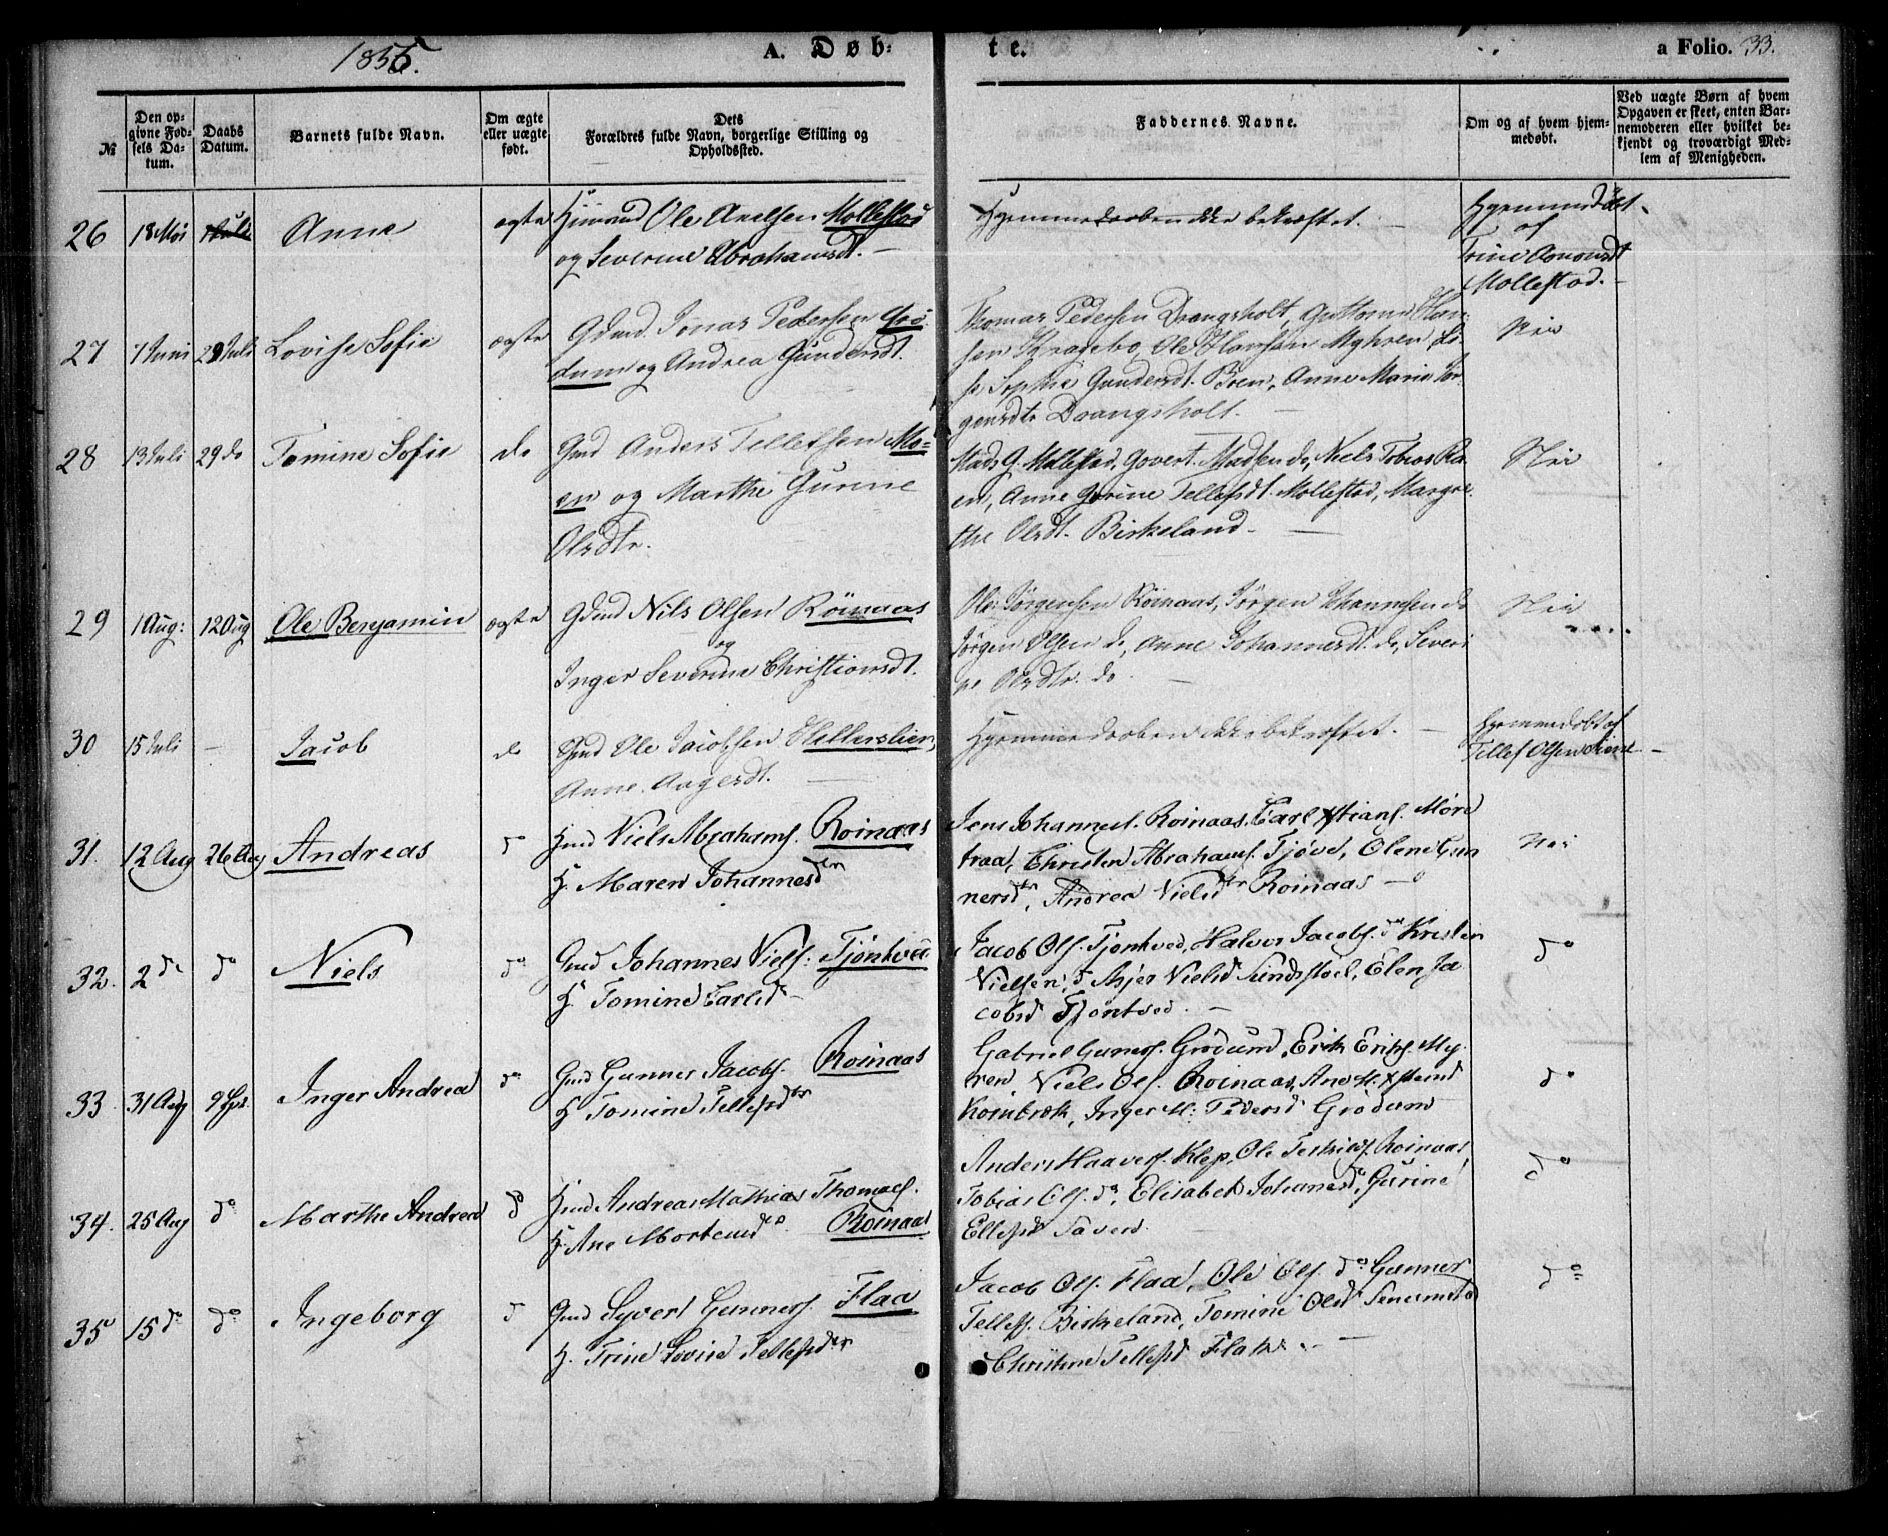 1855.
A. Døb-
te.
a Folio. 33.
№
Den op-
givne Fød-
sels Da-
tum.
Daabs
Datum.
Barnets fulde Navn.
Om ægte
eller uægte
født.
Dets
Forældres fulde Navn, borgerlige Stilling og
Opholdssted.
Faddernes Navne.
Om og af hvem hjem-
medøbt.
Ved uægte Børn af hvem
Opgaven er skeet, enten Bar-
nemoderen eller hvilket be-
kjendt og troværdigt Med-
lem af Menigheden.
26 18 Mai Anne ægte Huusmand Ole Axelsen Mollestad
og Severine Abrahamsdt. —
Hjemmedaaben ikke bekræftet. —
Hjemmedøbt
af
Trine Amonsdt
Mollestad. —
27 7 Juni 29 Juli Lovise Sofie ægte Gdmd. Jonas Pedersen Grø-
dum og Andrea Gundersdt.
Thomas Pedersen Drangsholt, Guttorm Han-
sen Kragebo, Ole Hansen Myhren, Li-
se Sophie Gundersdt. Breu, Anne Marie Jør-
gensdtr Drangsholt. —
Nei
28 13 Juli 29 do Tomine Sofie do Gmd Anders Tellefsen Mo-
en og Marthe Gurine
Olsdtr.
Mads G. Mollestad, Govert Madsen do, Niels Tobias Ra-
en, Anne Gurine Tellefsdt. Mollestad, Margre-
the Olsdt. Birkeland. —
Nei
29 1 Aug: 12 Aug Ole Benjamin ægte Gdmd Nils Olsen Röinaas
og
Inger Severine Christiansdt.
Ole Jørgensen Röinaas, Jørgen Johannesen do
Jørgen Olsen do, Anne Johannesdt. do, Severi-
ne Olsdtr. do —
Nei
30 15 Juli — Jacob do Gmd Ole Jacobsen Hellerslien,
Anne Aagesdt. —
Hjemmedaaben ikke bekræftet. —
Hjemmedøbt af
Tellef Olsen —
31. 12 Aug 26 Aug Andreas do Hmd Niels Abrahams. Roinaas
H. Maren Johannesdtr
Jens Johannes. Roinaas, Carl Xstians. Møre-
traa, Christen Abrahams. Tjøve, Olene Gun-
nersdtr, Andrea Nielsdtr Roinaas —
Nei
32. 2 do do Niels do Gmd Johannes Niels: Tjøntved
H. Tomine Carlsd —
Jacob Ols. Tjøntved, Halvor Jacobs. do Kristen
Nielsen, do Asjer Nielsd Sundstoel, Elen Ja-
cobsd Tjøntved. —
do
33. 31 Aug 9 Spt. Inger Andrea do Gmd Gunner Jacobs. Roinaas
H Tomine Tellefsdtr
Gabriel Guners. Grødum, Erik Eriks. My-
ren, Niels Ols. Roinaas, Ane M. Xstensd
Kornbrek, Inger M: Pedersd Grødum
do
34. 25 Aug do Marthe Andrea do Hmd Andreas Mathias Thomas.
H. Ane Mortensd Roinaas
Anders Haavers. Klep, Ole Terkields. Roinaas,
Tobias Ols. do, Elisabeth Johanesd, Gurine
Ellefsd Saven.
do
35 15 do do Ingeborg do Gmd Syvert Gunners. Flaa
H. Trine Lovise Tellefsdtr
Jacob Ols. Flaa, Ole Ols. do Gunner
Tellefs. Birkeland, Tomine Olsd
Christine Tellefsd Flaa —
do